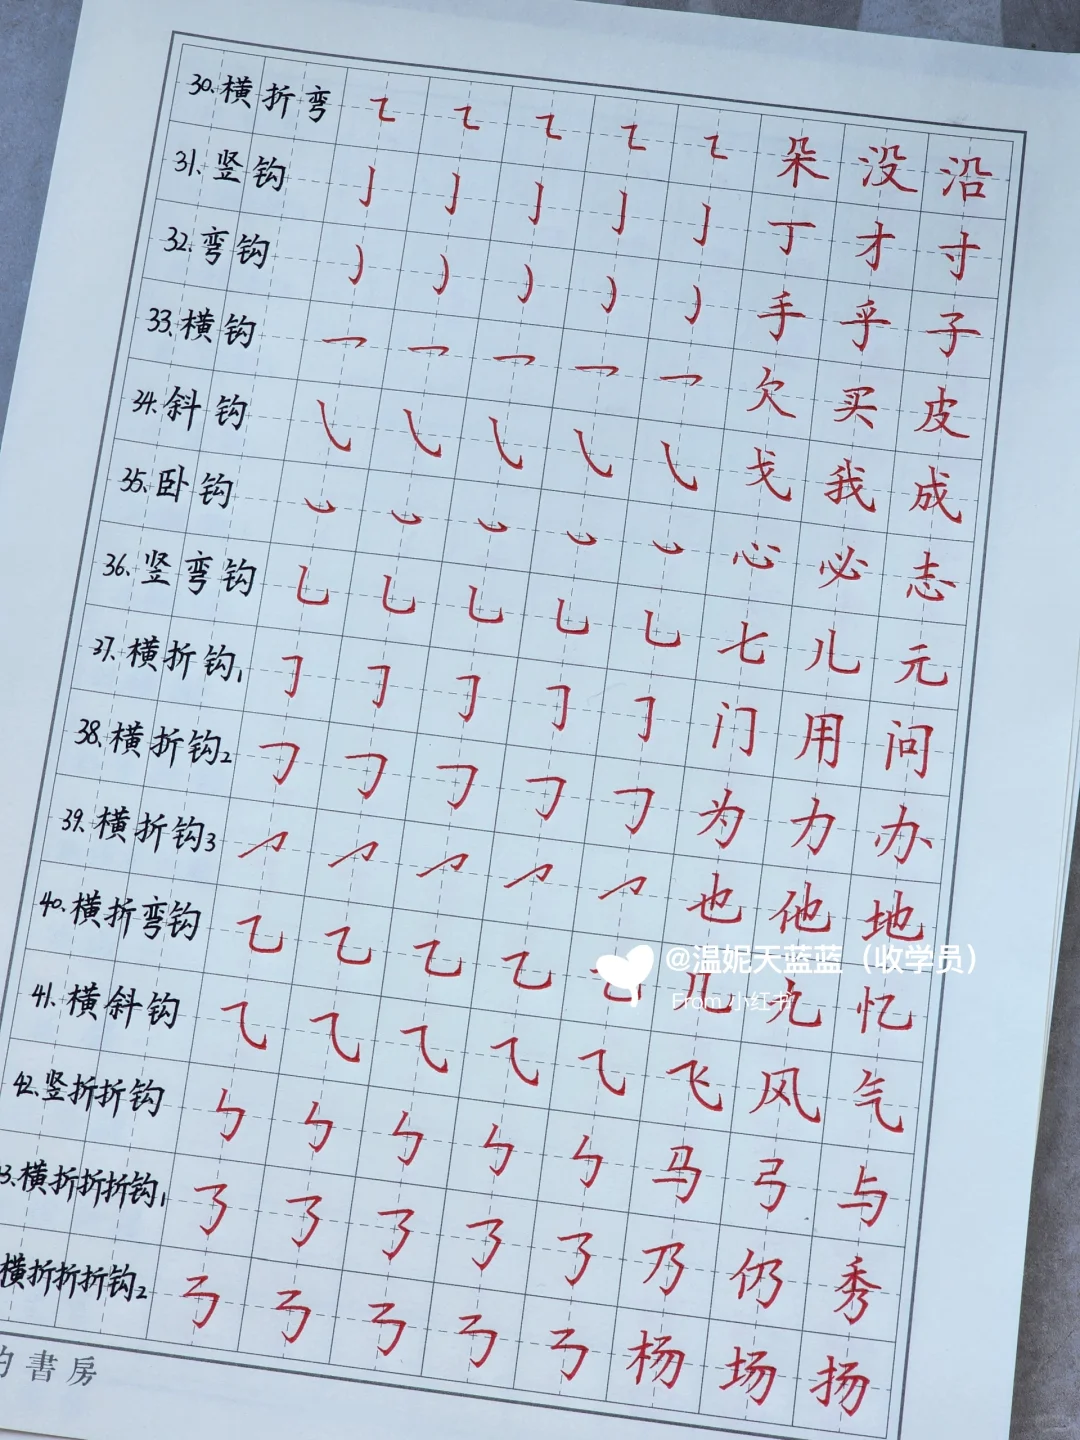 30.横折弯 ㇍ ㇍ ㇍ ㇍ ㇍ 朵 没 沿
31.竖钩 亅 亅 亅 亅 亅 丁 才 寸
32.弯钩 ㇁ ㇁ ㇁ ㇁ ㇁ 手 乎 子
33.横钩 ㇖ ㇖ ㇖ ㇖ ㇖ 欠 买 皮
34.斜钩 ㇂ ㇂ ㇂ ㇂ ㇂ 戈 我 成
35.卧钩 ㇃ ㇃ ㇃ ㇃ ㇃ 心 必 志
36.竖弯钩 乚 乚 乚 乚 乚 七 儿 元
37.横折钩1 ㇆ ㇆ ㇆ ㇆ ㇆ 门 用 问
38.横折钩2 ㇆ ㇆ ㇆ ㇆ ㇆ 为 力 办
39.横折钩3 ㇆ ㇆ ㇆ ㇆ ㇆ 也 他 地
40.横折弯钩 ㇈ ㇈ ㇈ ㇈ ㇈ 几 亢 忆
@温妮天蓝蓝（收学员）
From 小红书
41.横斜钩 ⺄ ⺄ ⺄ ⺄ ⺄ 飞 风 气
42.竖折折钩 ㇉ ㇉ ㇉ ㇉ ㇉ 马 弓 与
3.横折折折钩1 ㇡ ㇡ ㇡ ㇡ ㇡ 乃 仍 秀
横折折折钩2 ㇡ ㇡ ㇡ ㇡ ㇡ 杨 场 扬
書房